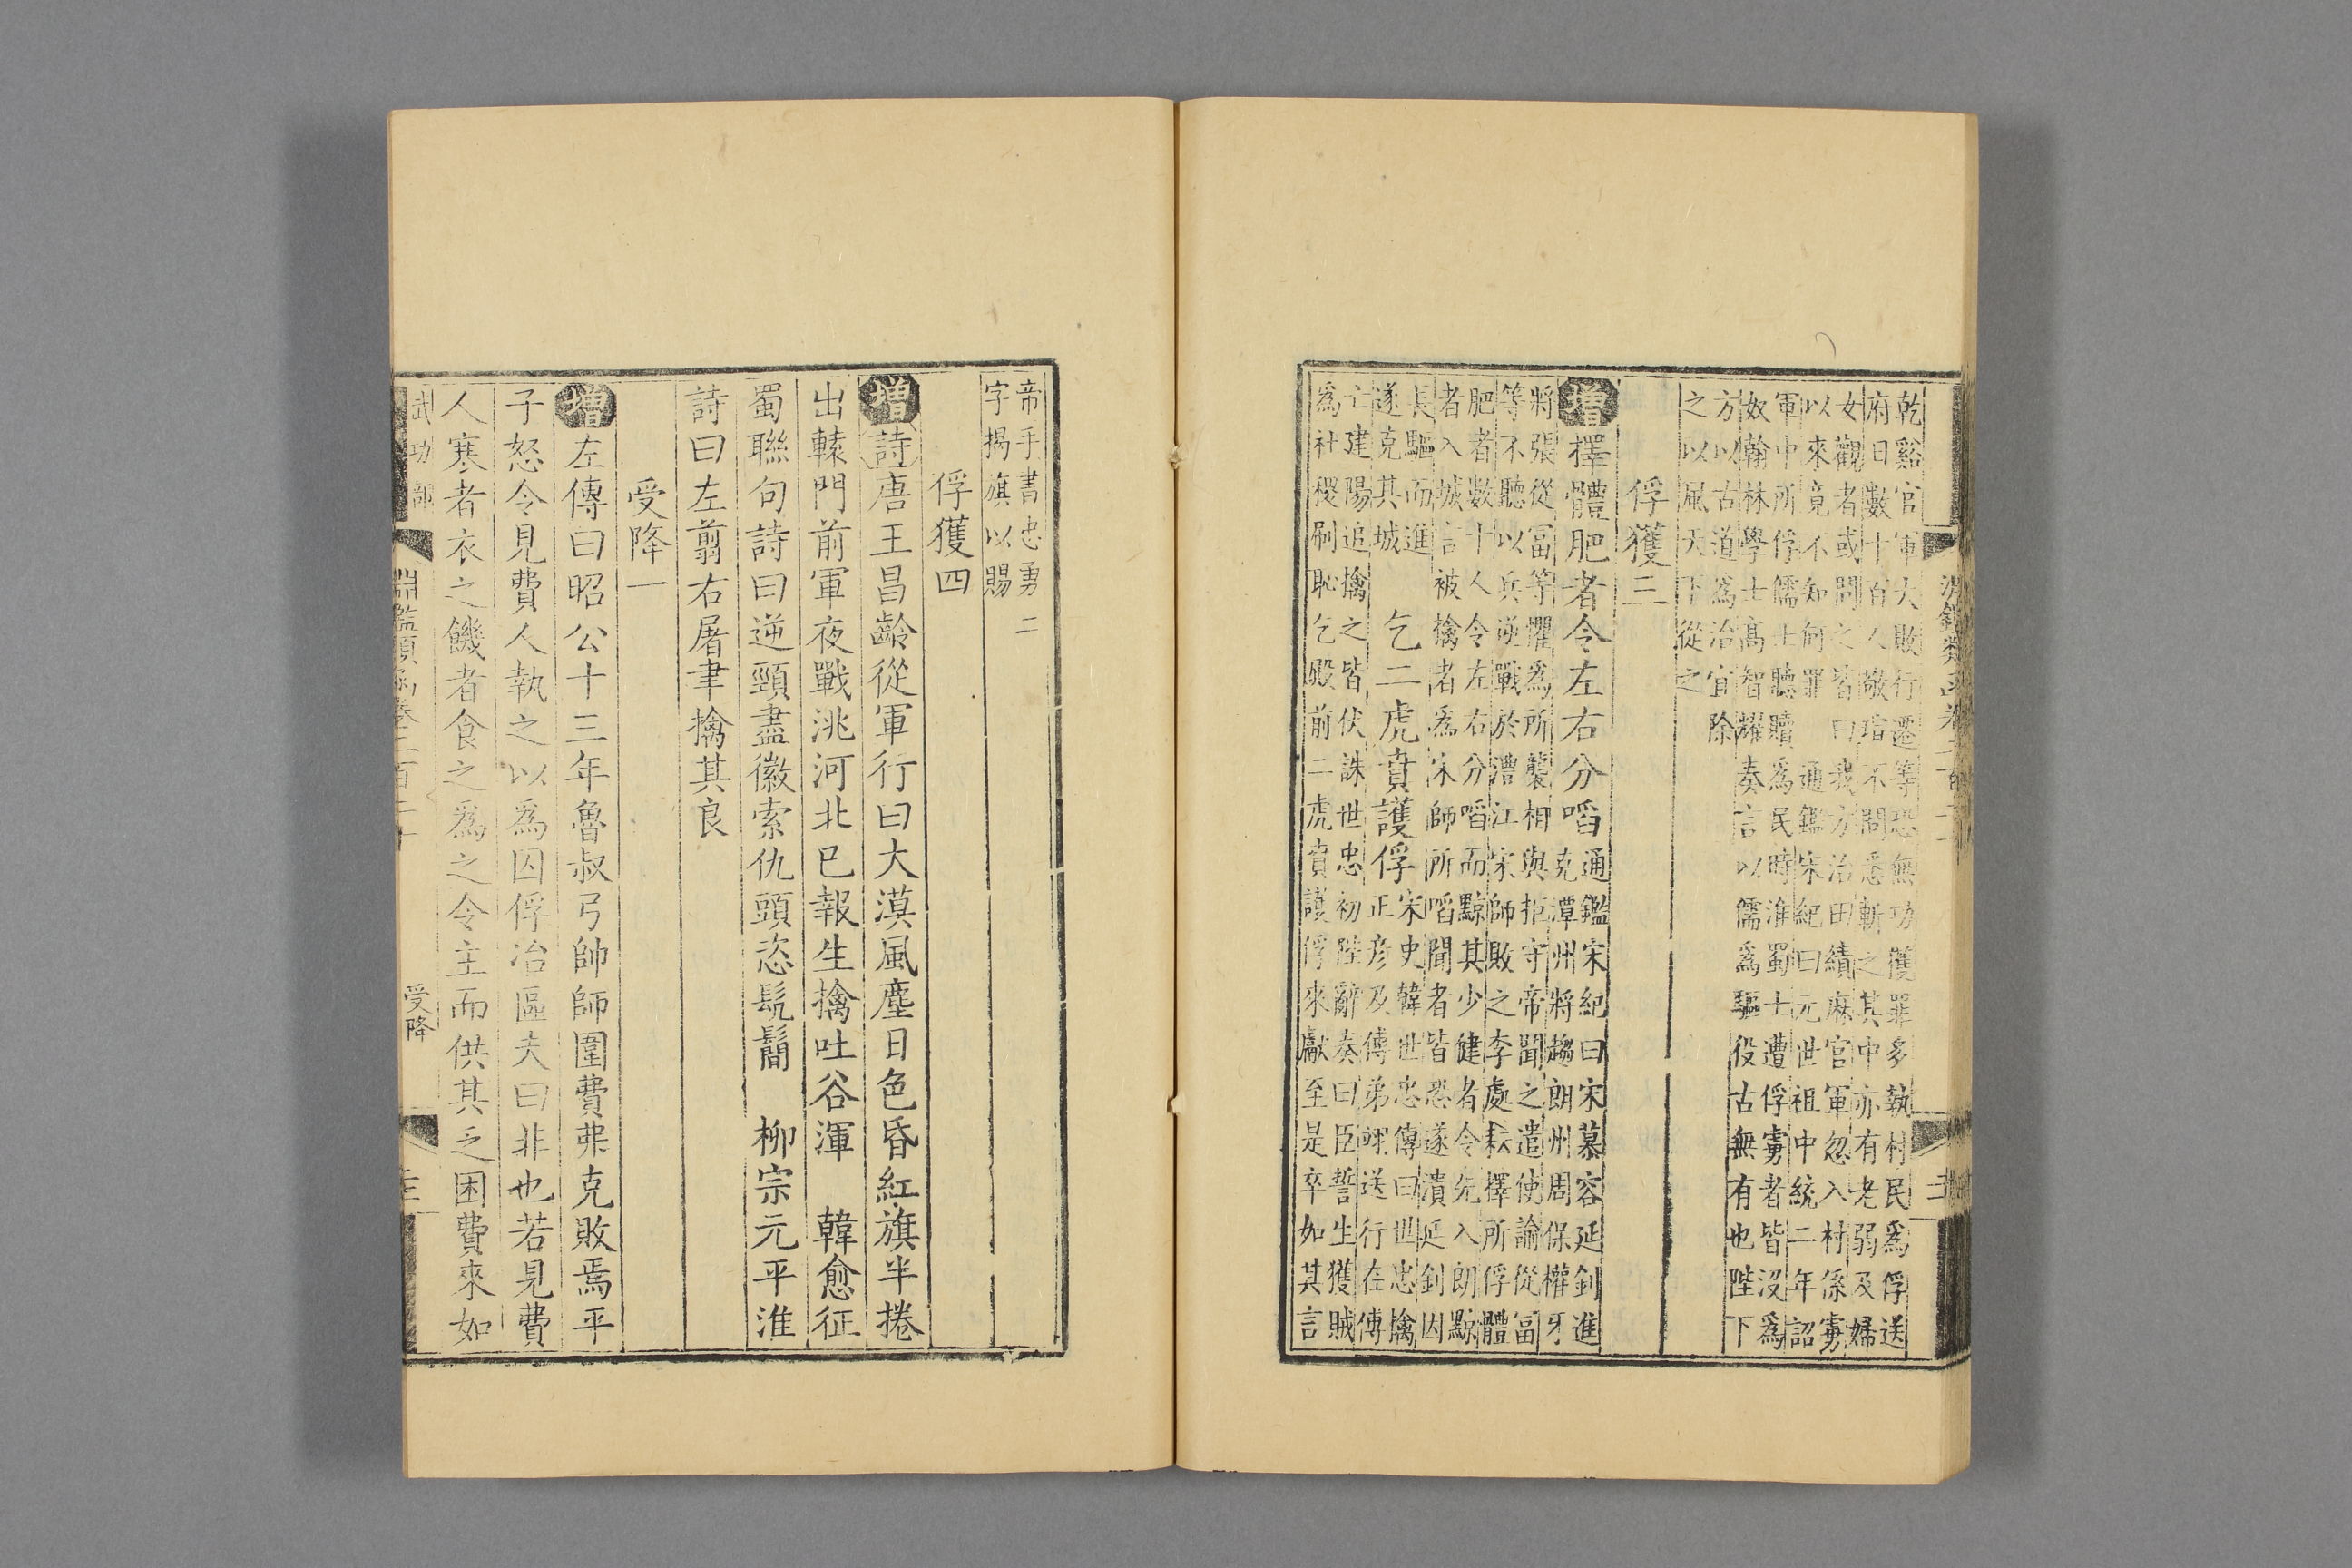 乾谿官軍大敗行遷等恐無功獲罪多執村民爲俘送
府日數十百人敬瑄不問悉斬之其中亦有老弱及婦
女觀者或問之皆曰我方治田績麻官軍忽入村係虜
以來竟不知何罪 通鑑宋紀曰元世祖中統二年詔
軍中所俘儒士聽贖爲民時淮蜀士遭俘虜者皆没爲
奴翰林學士高智耀奏言以儒爲驅役古無有也陛下
方以古道爲治宜除
之以風天下從之
俘獲三
增擇體肥者令左右分啗
通鑑宋紀曰宋慕容延釗進
克潭州將趨朗州周保權牙
將張從富等懼爲所襲相與拒守帝聞之遣使諭從富
等不聽以兵逆戰於澧江宋師敗之李處耘擇所俘體
肥者數十人令左右分啗而黥其少健者令先入朗黥
者入城言被擒者爲宋師所啗聞者皆恐遂潰延釗因
長驅而進
遂克其城
乞二虎賁護俘
宋史韓世忠傳曰世忠擒
正彦及傅弟翊送行在傅
亡建陽追擒之皆伏誅世忠初陛辭奏曰臣誓生獲賊
爲社稷刷恥乞殿前二虎賁護俘來獻至是卒如其言
帝手書忠勇二
字揭旗以賜
俘獲四
增詩唐王昌齡從軍行曰大漠風塵日色昏紅旗半捲
出轅門前軍夜戰洮河北已報生擒吐谷渾 韓愈征
蜀聯句詩曰逆頸盡徽索仇頭恣髡鬜 柳宗元平淮
詩曰左翦右屠聿擒其良
受降一
增左傳曰昭公十三年魯叔弓帥師圍費弗克敗焉平
子怒令見費人執之以爲囚俘冶區夫曰非也若見費
人寒者衣之饑者食之爲之令主而供其乏困費來如
武功部
淵鑑類函卷二百二十
受降